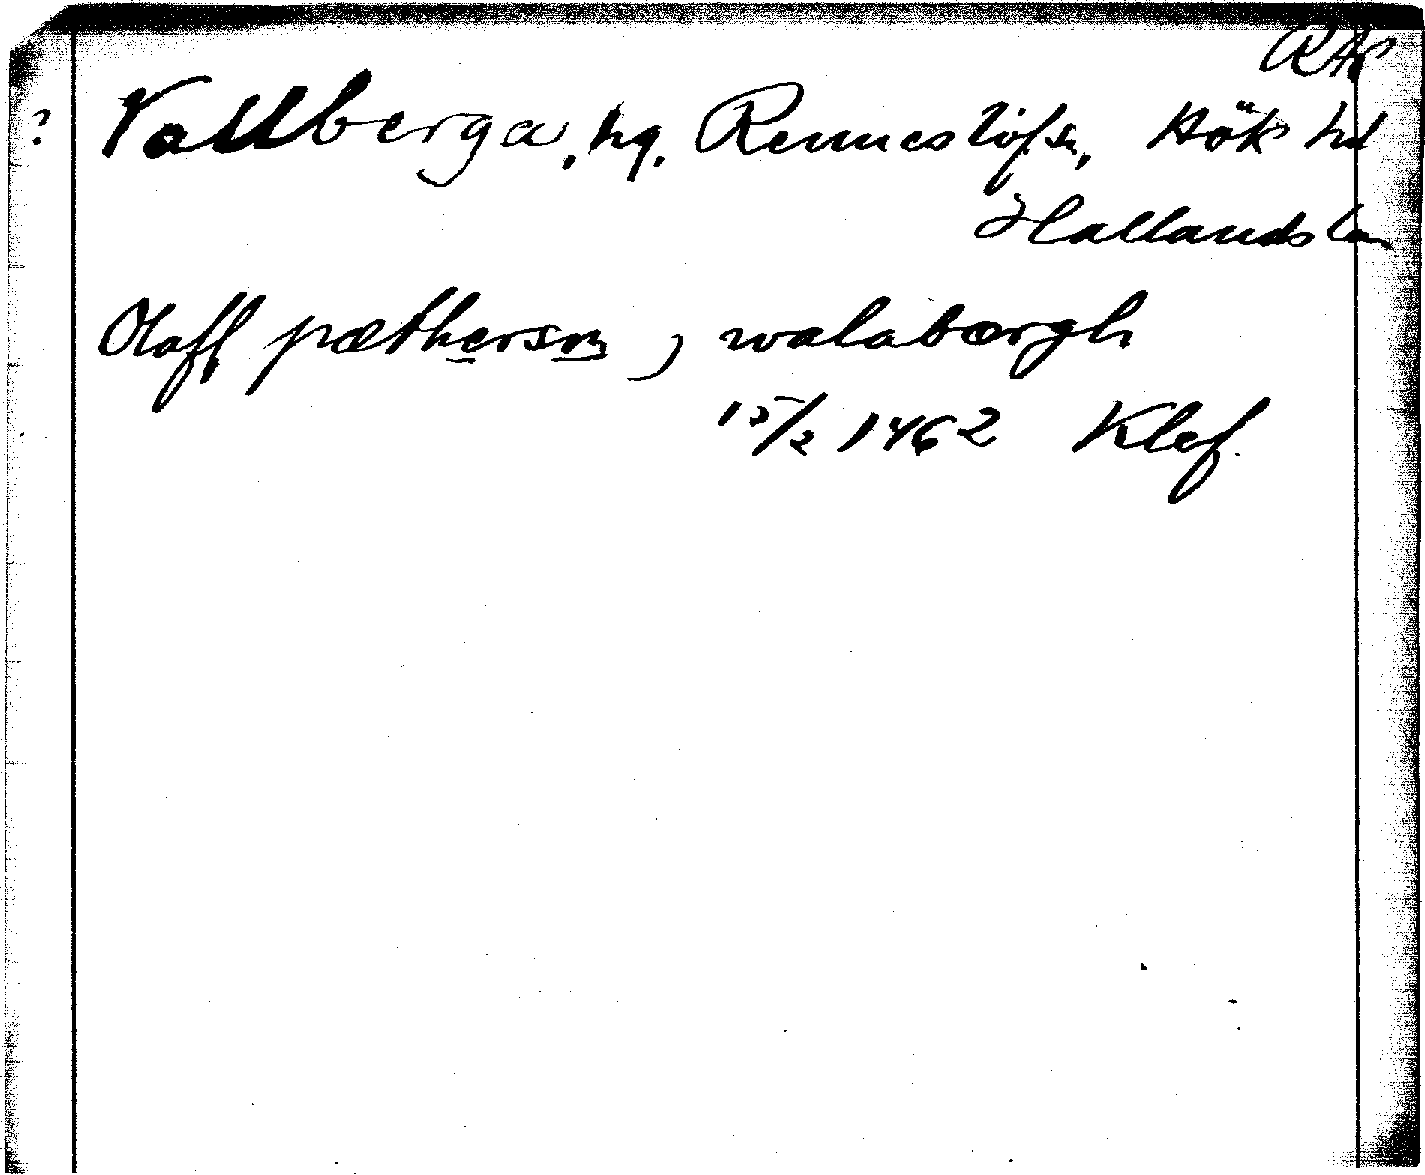 RAp
? Vallberga, hg, Renneslöfs sn, Höks hd
Hallands län
Olaff pætherson, j walabærgh
15/2 1462 Klef.